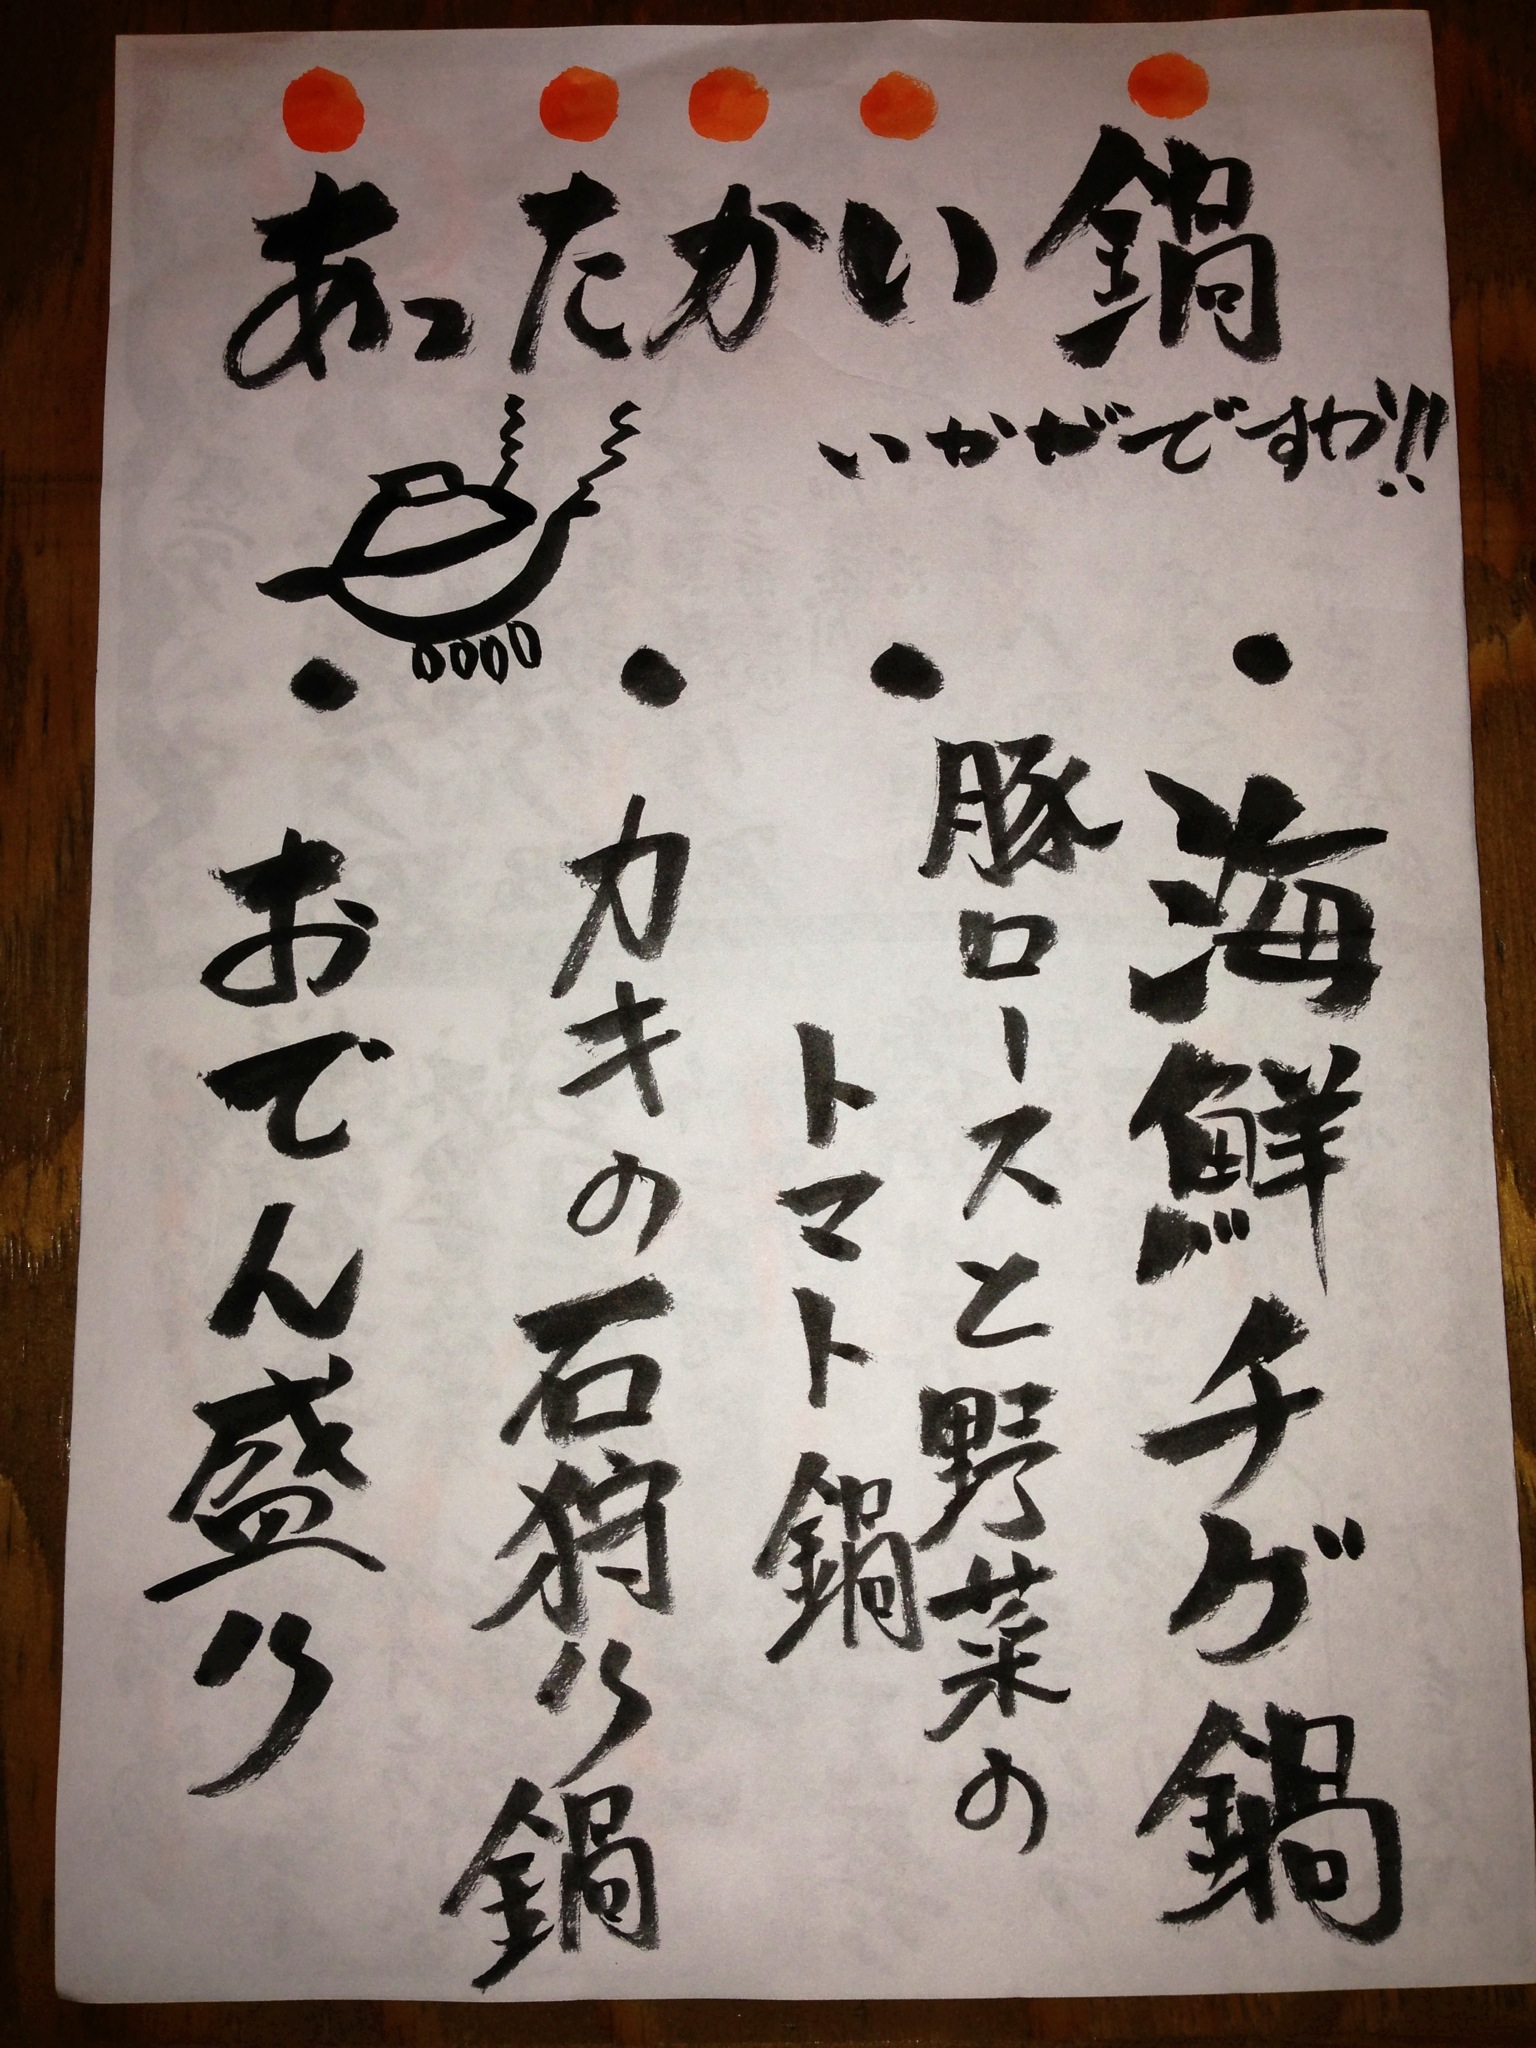 あったかい鍋
いかがですか!!
・海鮮チゲ鍋
・豚ロースと野菜の
トマト鍋
・カキの石狩り鍋
・おでん盛り